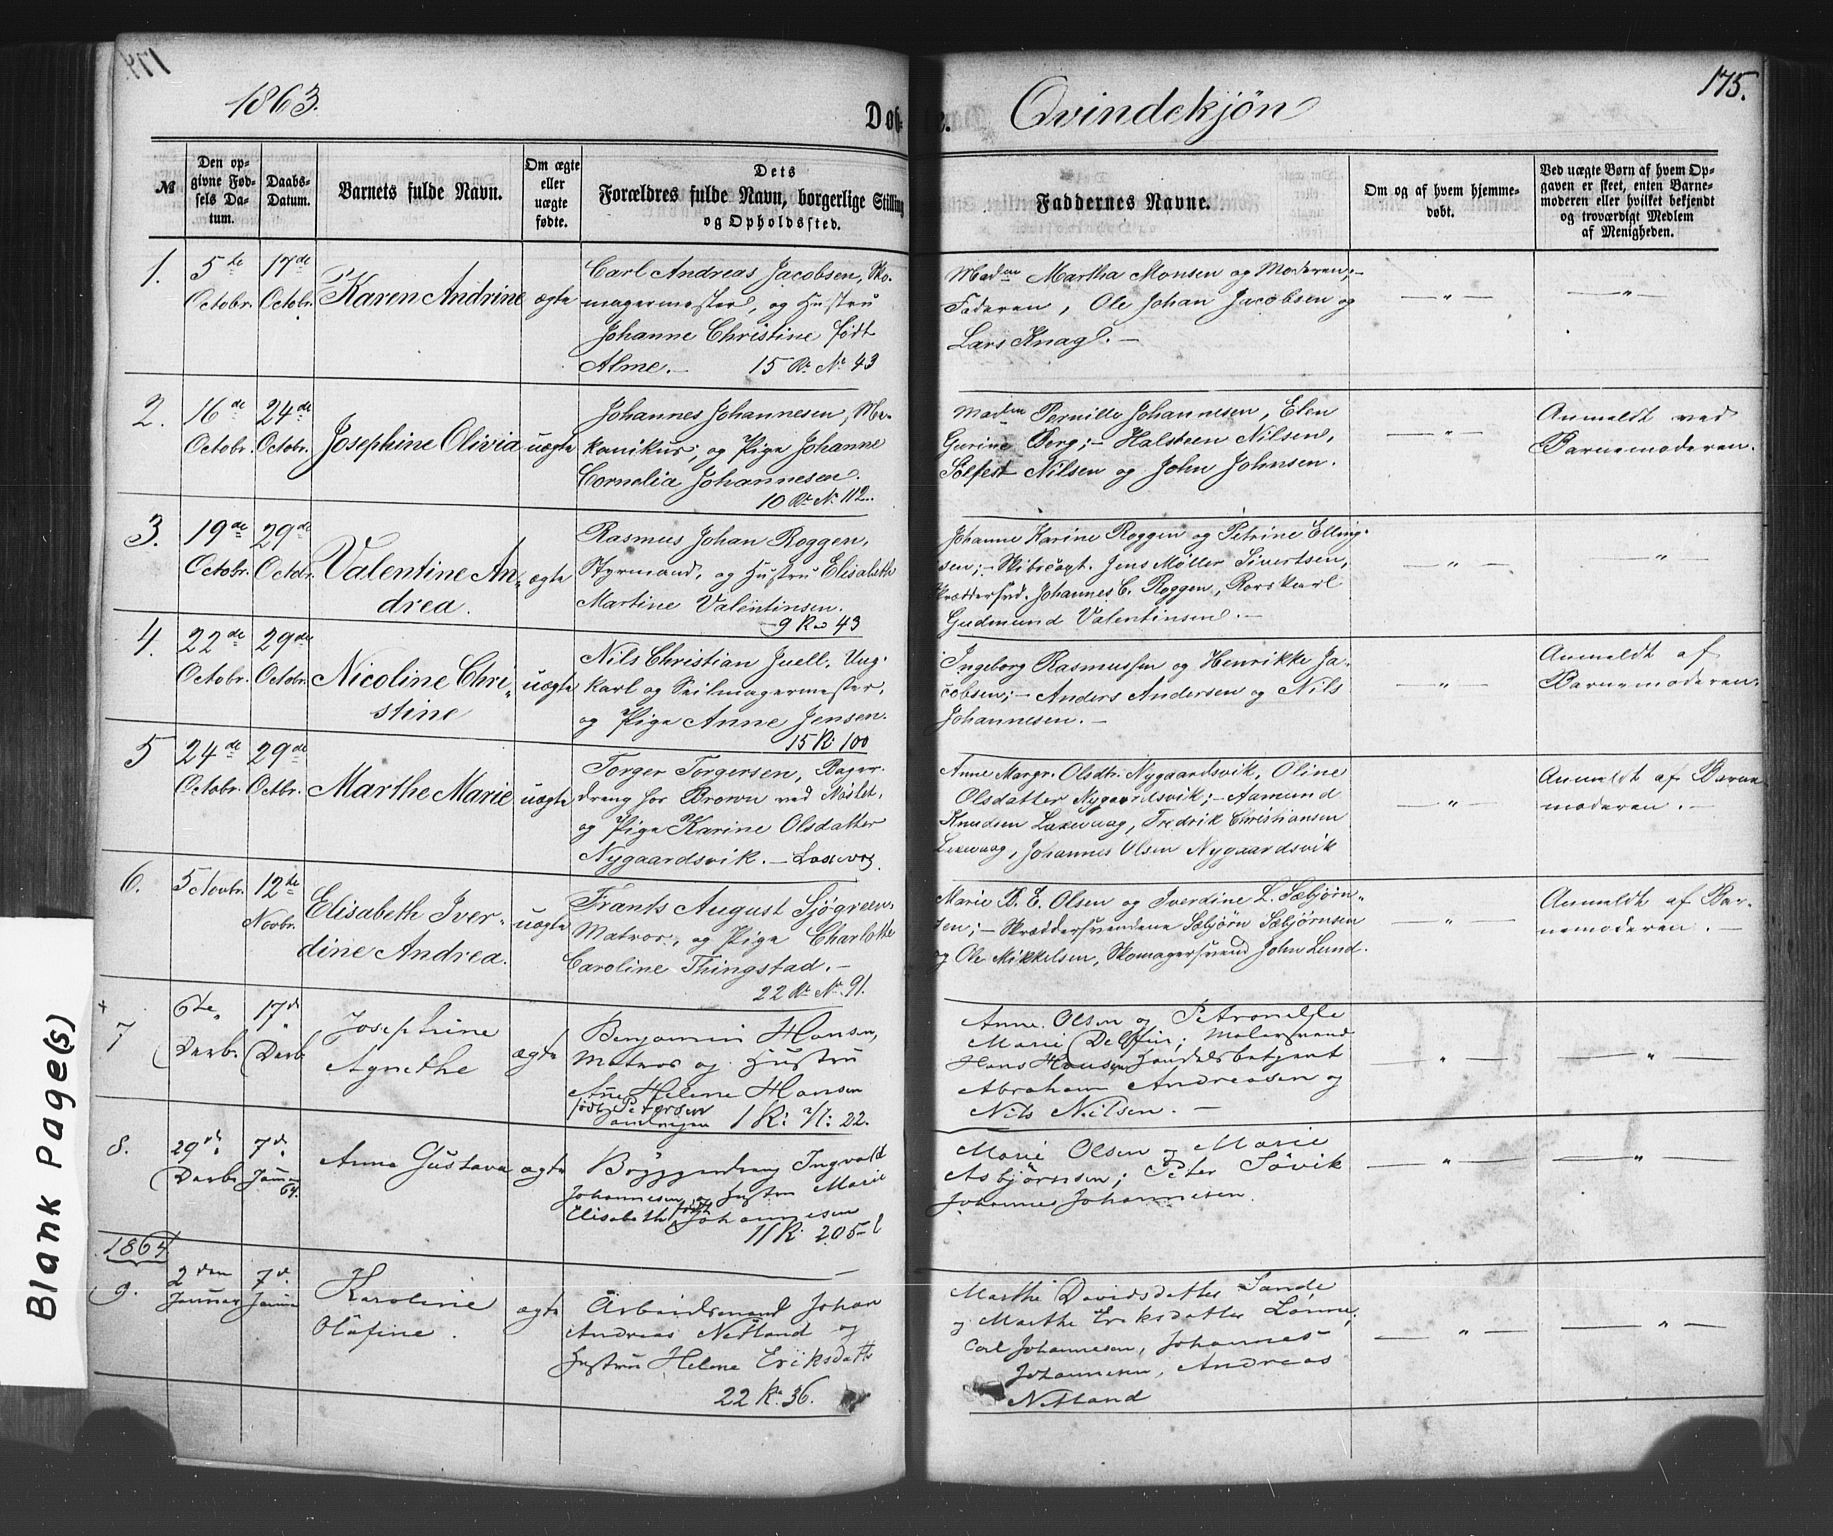 1863.
Døb-
e.
Qvindekjøn
175.
№
Den op-
givne Fød-
sels Da-
tum.
Daabs-
Datum.
Barnets fulde Navn.
Om ægte
eller
uægte
fødte.
Dets
Forældres fulde Navn, borgerlige Stilling
og Opholdssted.
Faddernes Navne.
Om og af hvem hjemme-
døbt.
Ved uægte Børn af hvem Op-
gaven er skeet, enten Barne-
moderen eller hvilket bekjendt
og troværdigt Medlem
af Menigheden.
1.
5te
Octobr.
17de
Octobr.
Karen Andrine
ægte
Carl Andreas Jacobsen, Sko-
magermester, og Hustru
Johanne Christine født
Alme.
15 R. No 43
Madme Martha Monsen og Moderen;-
Faderen, Ole Johan Jacobsen og
Lars Knag.-
— " —
— " —
2.
16de
Octobr.
24de
Octobr.
Josephine Olivia
uægte
Johannes Johannesen, Me-
kanikus, og Pige Johanne
Cornelia Johannesen.
10 R. No 112.
Madm Pernille Johannesen, Elen
Gurine Berg;- Halsteen Nilsen,
Solfest Nilsen og John Johnsen.
— " —
Anmeldt ved
Barnemoderen.
3.
19de
Octobr.
29de
Octobr.
Valentine An-
drea.
ægte
Rasmus Johan Roggen,
Styrmand, og Hustru Elisabeth
Martine Valentinsen.
9 R. 43
Johanne Karine Roggen og Petrine Elling-
sen;- Skibscapt. Jens Møller Sivertsen,
Skræddersvd. Johannes C. Roggen, Rorskarl
Gudmund Valentinsen.-
— " —
— " —
4.
22de
Octobr.
29de
Octobr.
Nicoline Chri-
stine
uægte
Nils Christian Juell, Ung-
karl og Seilmagermester,
og Pige Anne Jensen.
15 R. 100
Ingeborg Rasmussen og Henrikke Ja-
cobsen;- Anders Andersen og Nils
Johannesen.-
— " —
Anmeldt af
Barnemoderen.
5
24de
Octobr.
29de
Octbr.
Marthe Marie
uægte
Torger Torgersen, Bager-
dreng hos Brown ved Nøstet,
og Pige Karine Olsdatter
Nygaardsvik.- Laxevog
Anne Margr. Olsdtr. Nygaardsvik, Oline
Olsdatter Nygaardsvik;- Aamund
Knudsen Laxevaag, Fredrik Christiansen
Laxevaag, Johannes Olsen Nygaardsvik
— " —
Anmeldt af Barne
moderen.-
6.
12te
Novbr.
Elisabeth Iver-
dine Andrea.
uægte
Frants August Sjøgreen,
Matros, og Pige Charlotte
Caroline Thingstad.-
22 R. No 91.
Marie B. E. Olsen og Iverdine L. Sæbjørn-
sen;- Skræddersvendene Sæbjørn Sæbjørnsen
og Ole Mikkelsen, Skomagersvend John Lund.
— " —
Anmeldt af Bar-
nemoderen.-
7
6te
Decbr.
17d
Decb.
Josephine
Agnethe
ægte
Benjamin Hansen,
Matros og Hustru
Ane Helene Hansen
født Petersen
1 R: 22.
Anne Olsen og Petronelle
Marie Delfin; Malersvend
Hans Hansen, Handelsbetjent
Abraham Andreasen og
Nils Nilsen.-
— " —
— " —
8.
29d
Decbr
7d.
Januar
64.
Anna Gustava
ægte
Byggendreng Ingvald
Johannesen og Hustru Marie
Elisabeth født Johannesen
11 R. 205-
Marie Olsen og Marie
Asbjørnsen; Peter Søvik
Johannes Johannesen.
— " —
— " —
1864
9.
2den
Januar
7d.
Janua
Karoline
Olafine.
ægte
Arbeidsmand Johan
Andreas Netland og
Hustru Helene Eriksdatter
22 R. 36.
Marthe Davidsdatter Sande
og Marthe Eriksdatter Lønne;
Carl Johannesen, Johannes
Johannesen, Andreas
Netland
— " —
— " —
Blank Page(s)